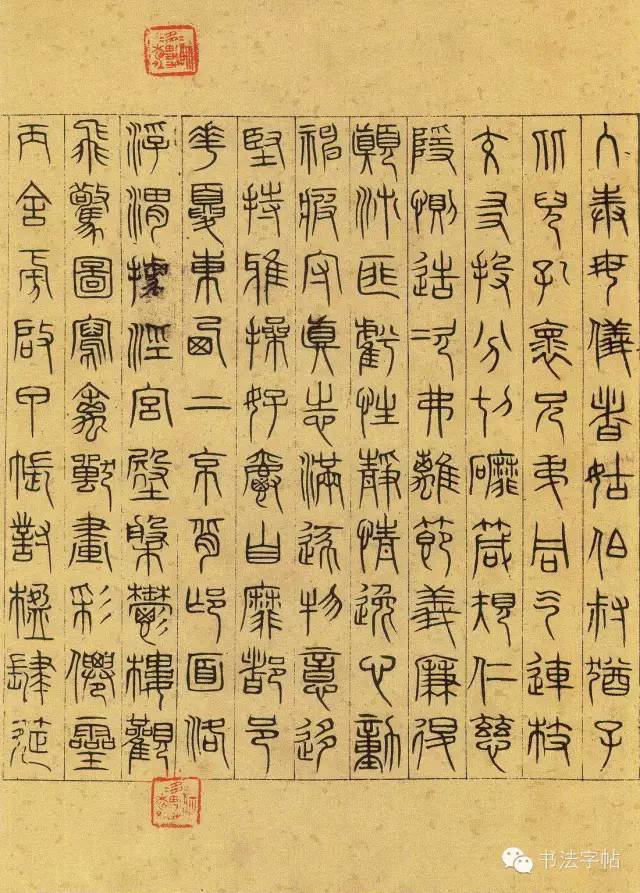 入奉母儀者姑伯叔猶子
比兒孔懷兄弟同气連枝
交友投分切磨箴規仁慈
隱惻造次弗離節義廉退
顛沛匪虧性靜情逸心動
神疲守真志滿逐物意移
堅持雅操好爵自縻都邑
華夏東西二京背邙面洛
浮渭據涇宮殿盤鬱樓觀
飛驚圖寫禽獸畫彩仙靈
丙舍傍啟甲帳對楹肆筵
书法字帖